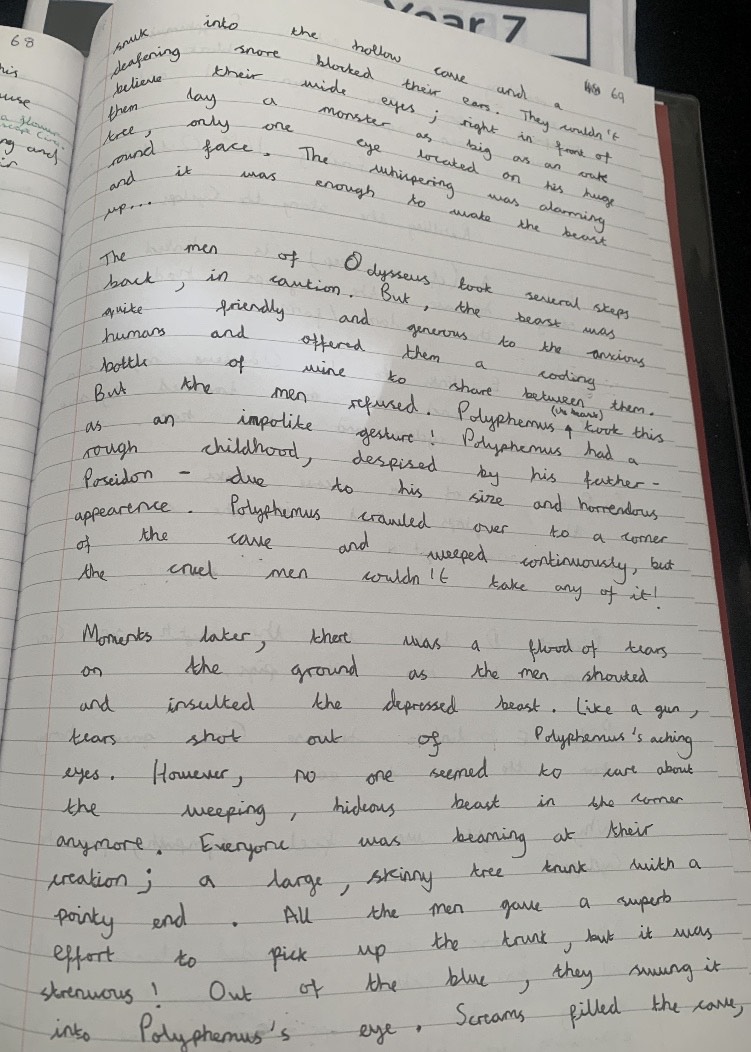 Year 7
68
his
use
ng and
69
snuk into the hollow cave and a
deafening snore blocked their ears. They couldn't
believe their wide eyes; right in front of
them lay a monster as big as an oak
tree, only one eye located on his huge
round face. The whispering was alarming
and it was enough to wake the beast
up...
The men of Odysseus took several steps
back, in caution. But, the beast was
quite friendly and generous to the anxious
humans and offered them a cooling
bottle of wine to share between them.
But the men refused. Polyphemus took this
as an impolike gesture! Polyphemus had a
rough childhood, despised by his father -
Poseidon - due to his size and horrendous
appearence. Polyphemus crawled over to a corner
of the cave and weeped continuously, but
the cruel men couldn't take any of it!
Moments later, there was a flood of tears
on the ground as the men shouted
and insulted the depressed beast. Like a gun,
tears shot out of Polyphemus's aching
eyes. However, no one seemed to care about
the weeping, hideous beast in the corner
anymore. Everyone was beaming at their
creation; a large, skinny tree trunk with a
pointy end. All the men gave a superb
effort to pick up the trunk, but it was
strenuous! Out of the blue, they swung it
into Polyphemus's eye. Screams filled the cave,